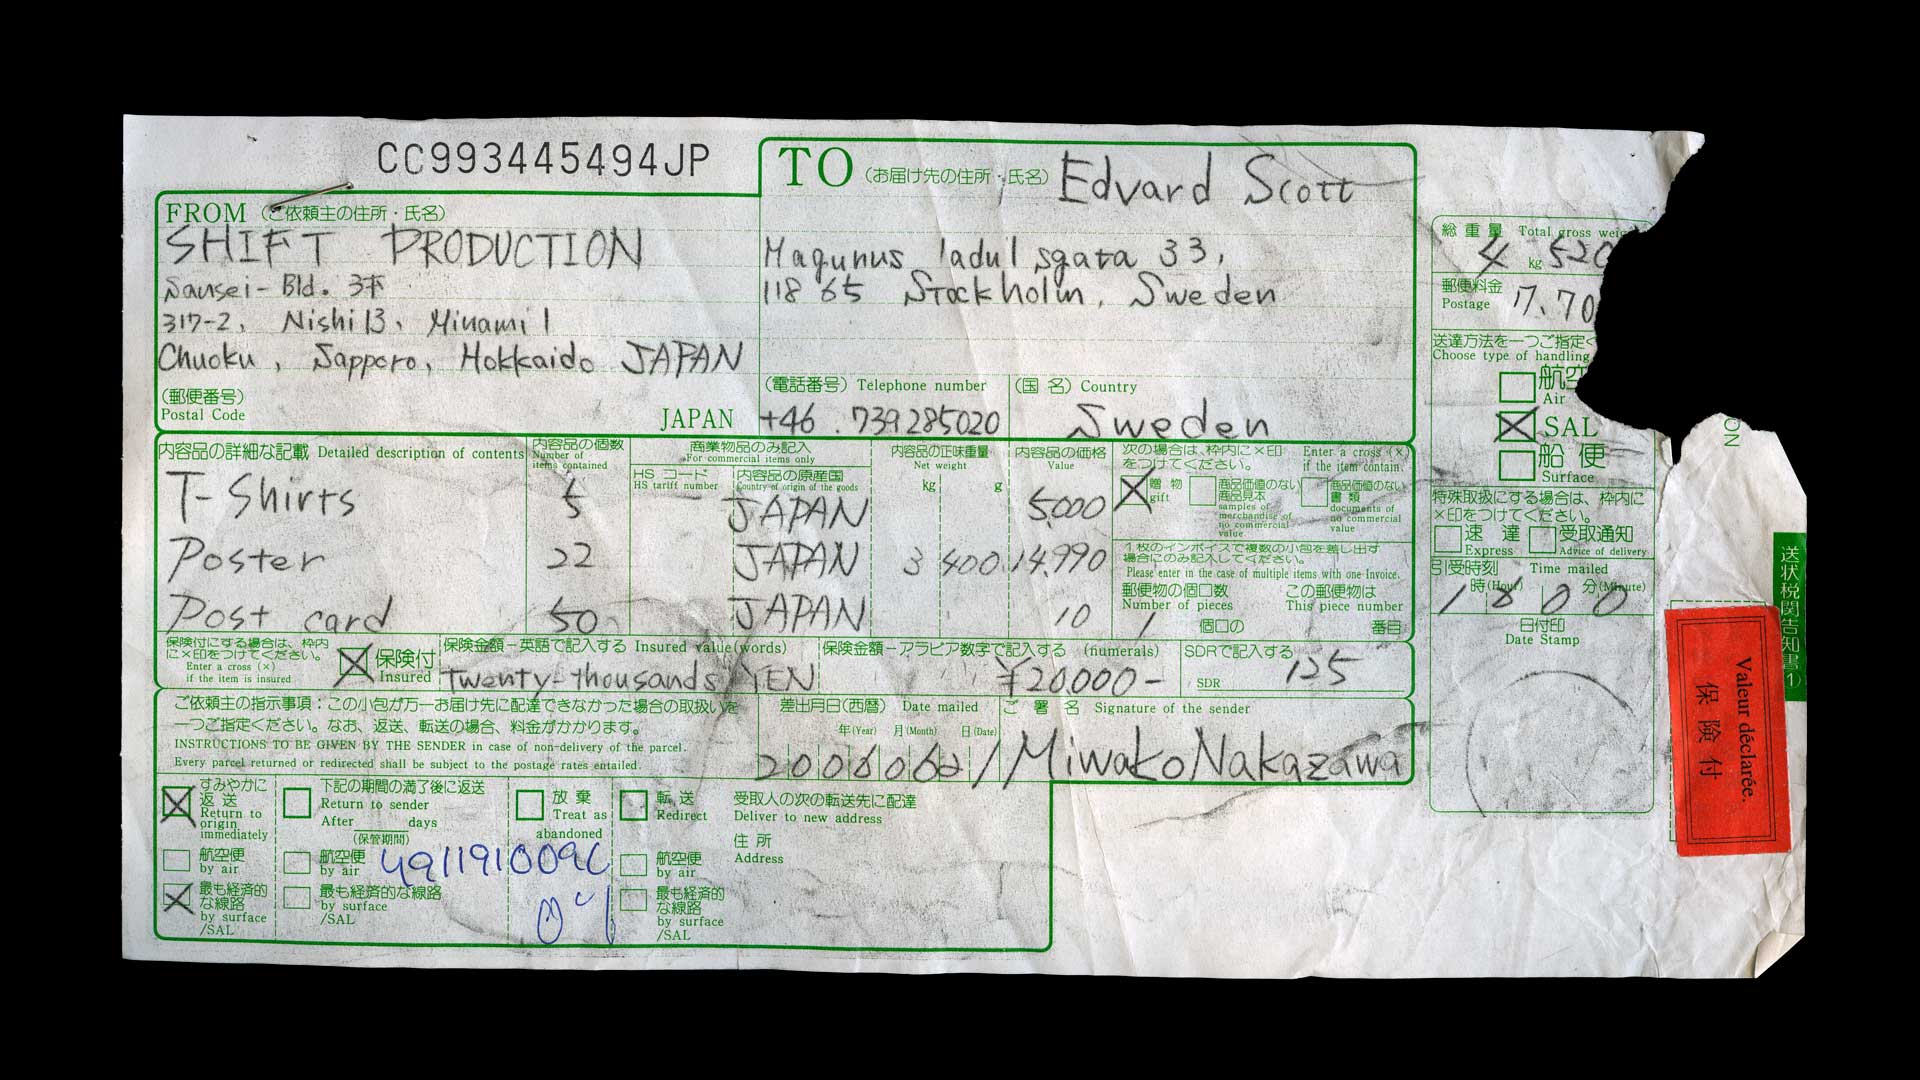 CC993445494JP
FROM (ご依頼主の住所・氏名)
SHIFT PRODUCTION
Sansei-Bld. 3F
317-2, Nishi 13, Minami 1
Chuoku, Sapporo, Hokkaido JAPAN
(郵便番号)
Postal Code
JAPAN
TO (お届け先の住所・氏名) Edvard Scott
Magunus ladulsgata 33,
118 65 Stockholm, Sweden
(電話番号) Telephone number
+46 . 739285020
(国 名) Country
Sweden
総 重 量 Total gross
4 kg 520
郵便料金
Postage 7.70
送達方法を一つご指定
Choose type of handling
航空
Air
SAL
船 便
Surface
特殊取扱にする場合は、枠内に
×印をつけてください。
速 達
Express
受取通知
Advice of delivery
引受時刻 Time mailed
時(Hour) 分(Minute)
日付印
Date Stamp
内容品の詳細な記載 Detailed description of contents
内容品の個数
Number of
items contained
商業物品のみ記入
For commercial items only
HS コード
HS tariff number
内容品の原産国
Country of origin of the goods
内容品の正味重量
Net weight
kg g
内容品の価格
Value
T-Shirts 5 JAPAN 5,000
Poster 22 JAPAN 3 400 14,990
Post card 50 JAPAN 10
次の場合は、枠内に×印
をつけてください。
Enter a cross (×)
if the item contain.
贈 物
gift
商品価値のない
商品見本
samples of
merchandise of
no commercial
value
商品価値のない
書 類
documents of
no commercial
value
1枚のインボイスで複数の小包を差し出す
場合にのみ記入してください。
Please enter in the case of multiple items with one Invoice.
郵便物の個口数 この郵便物は
Number of pieces This piece number
1 個口の 番目
保険付にする場合は、枠内
に×印をつけてください。
Enter a cross (×)
if the item is insured
保険付
Insured
保険金額－英語で記入する Insured value(words)
Twenty-thousands YEN
保険金額－アラビア数字で記入する (numerals)
¥20,000-
SDRで記入する
SDR 125
ご依頼主の指示事項：この小包が万一お届け先に配達できなかった場合の取扱いを
一つご指定ください。なお、返送、転送の場合、料金がかかります。
INSTRUCTIONS TO BE GIVEN BY THE SENDER in case of non-delivery of the parcel.
Every parcel returned or redirected shall be subject to the postage rates entailed.
差出月日(西暦) Date mailed
年(Year) 月(Month) 日(Date)
ご 署 名 Signature of the sender
Miwako Nakazawa
すみやかに
返 送
Return to
origin
immediately
航空便
by air
最も経済的
な線路
by surface
/SAL
下記の期間の満了後に返送
Return to sender
After days
(保管期間)
航空便
by air
最も経済的な線路
by surface
/SAL
放 棄
Treat as
abandoned
転 送
Redirect
航空便
by air
最も経済的
な線路
by surface
/SAL
受取人の次の転送先に配達
Deliver to new address
住 所
Address
送状税関告知書(1)
Valeur déclarée.
保 険 付